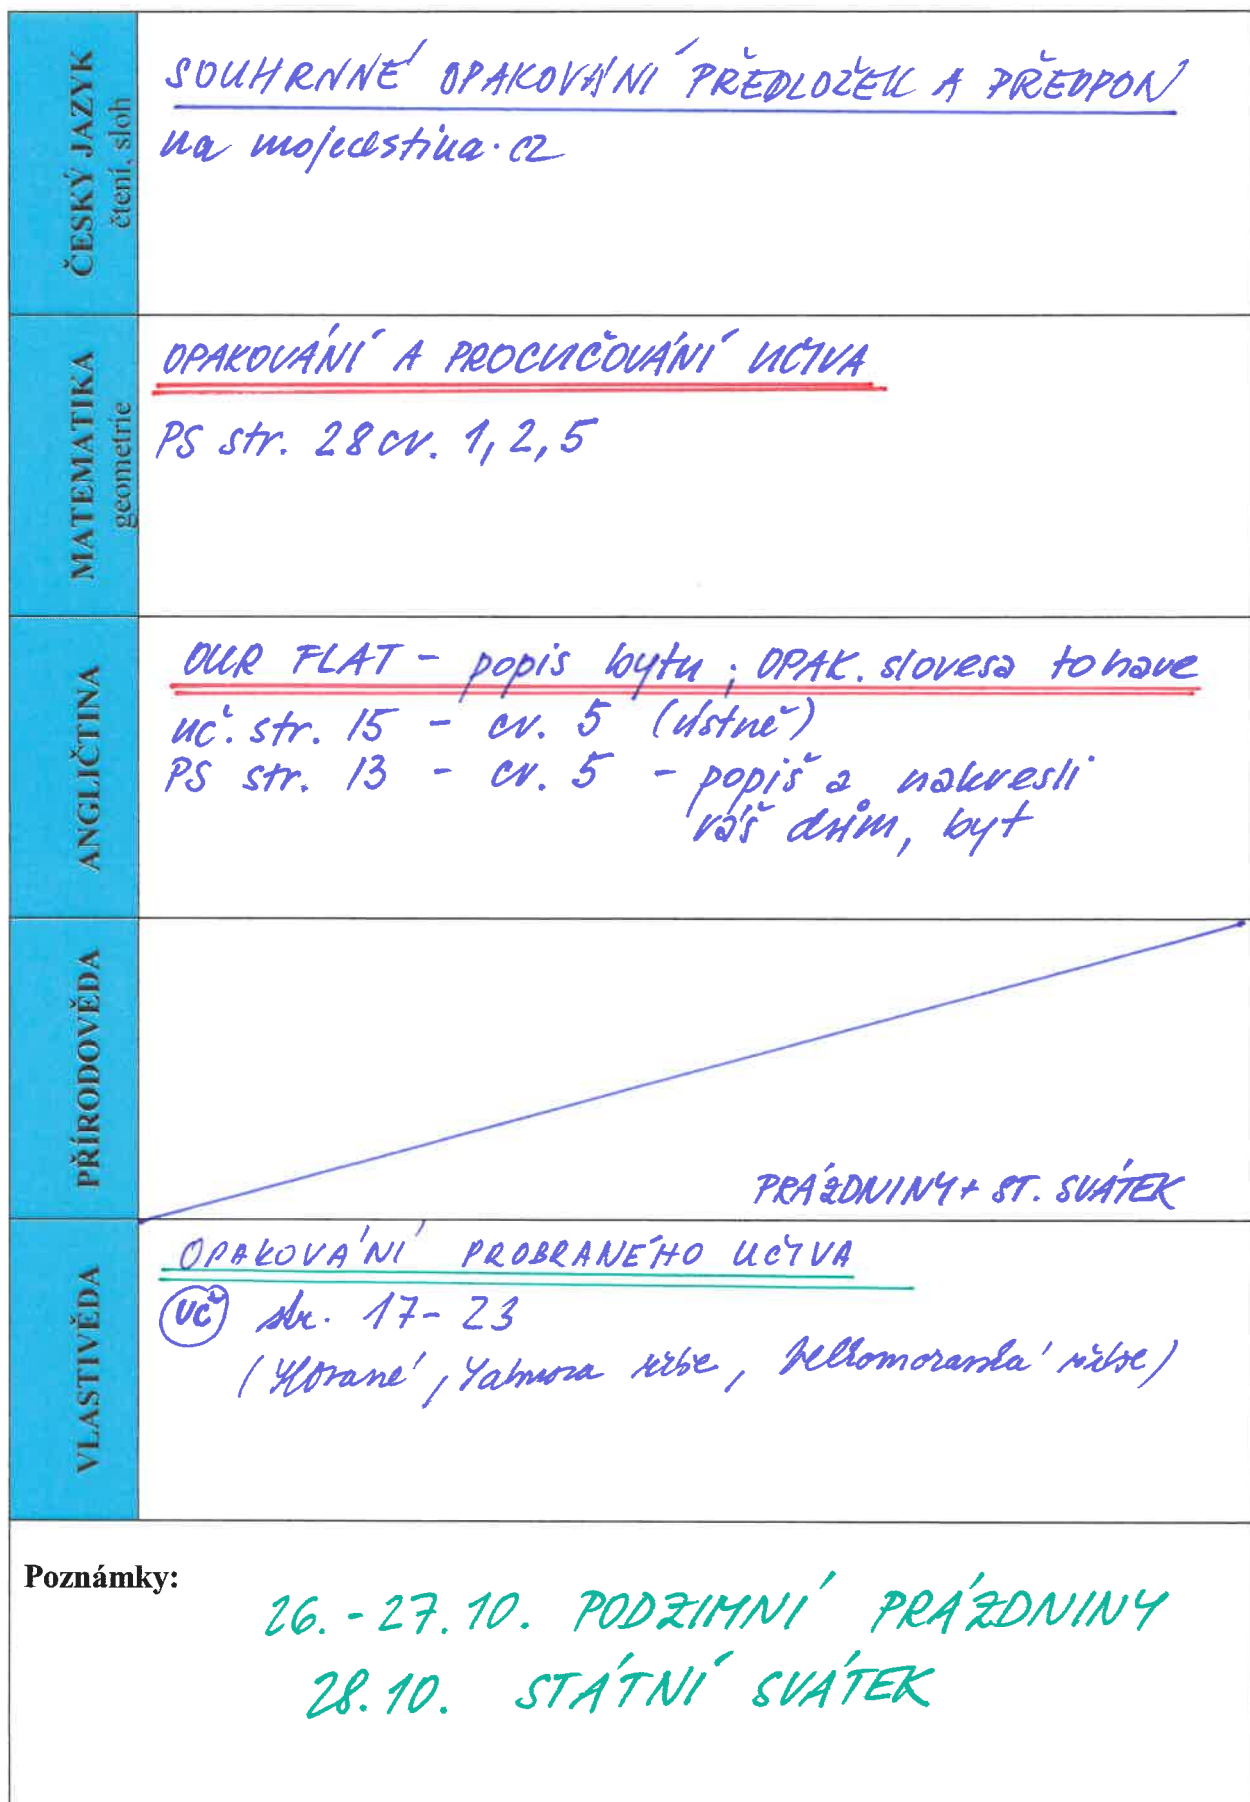 ČESKÝ JAZYK
čtení, sloh
SOUHRNNÉ OPAKOVÁNÍ PŘEDLOŽEK A PŘEDPON
na mojecestina.cz
MATEMATIKA
geometrie
OPAKOVÁNÍ A PROCVIČOVÁNÍ UČIVA
PS str. 28 cv. 1, 2, 5
ANGLIČTINA
OUR FLAT - popis bytu; OPAK. slovesa to have
uč. str. 15 - cv. 5 (ústně)
PS str. 13 - cv. 5 - popiš a nakresli
váš dům, byt
PŘÍRODOVĚDA
PRÁZDNINY + ST. SVÁTEK
VLASTIVĚDA
OPAKOVÁNÍ PROBRANÉHO UČIVA
UČ str. 17 - 23
(Slované, Sámova říše, Velkomoravská říše)
Poznámky:
26. - 27. 10. PODZIMNÍ PRÁZDNINY
28. 10. STÁTNÍ SVÁTEK